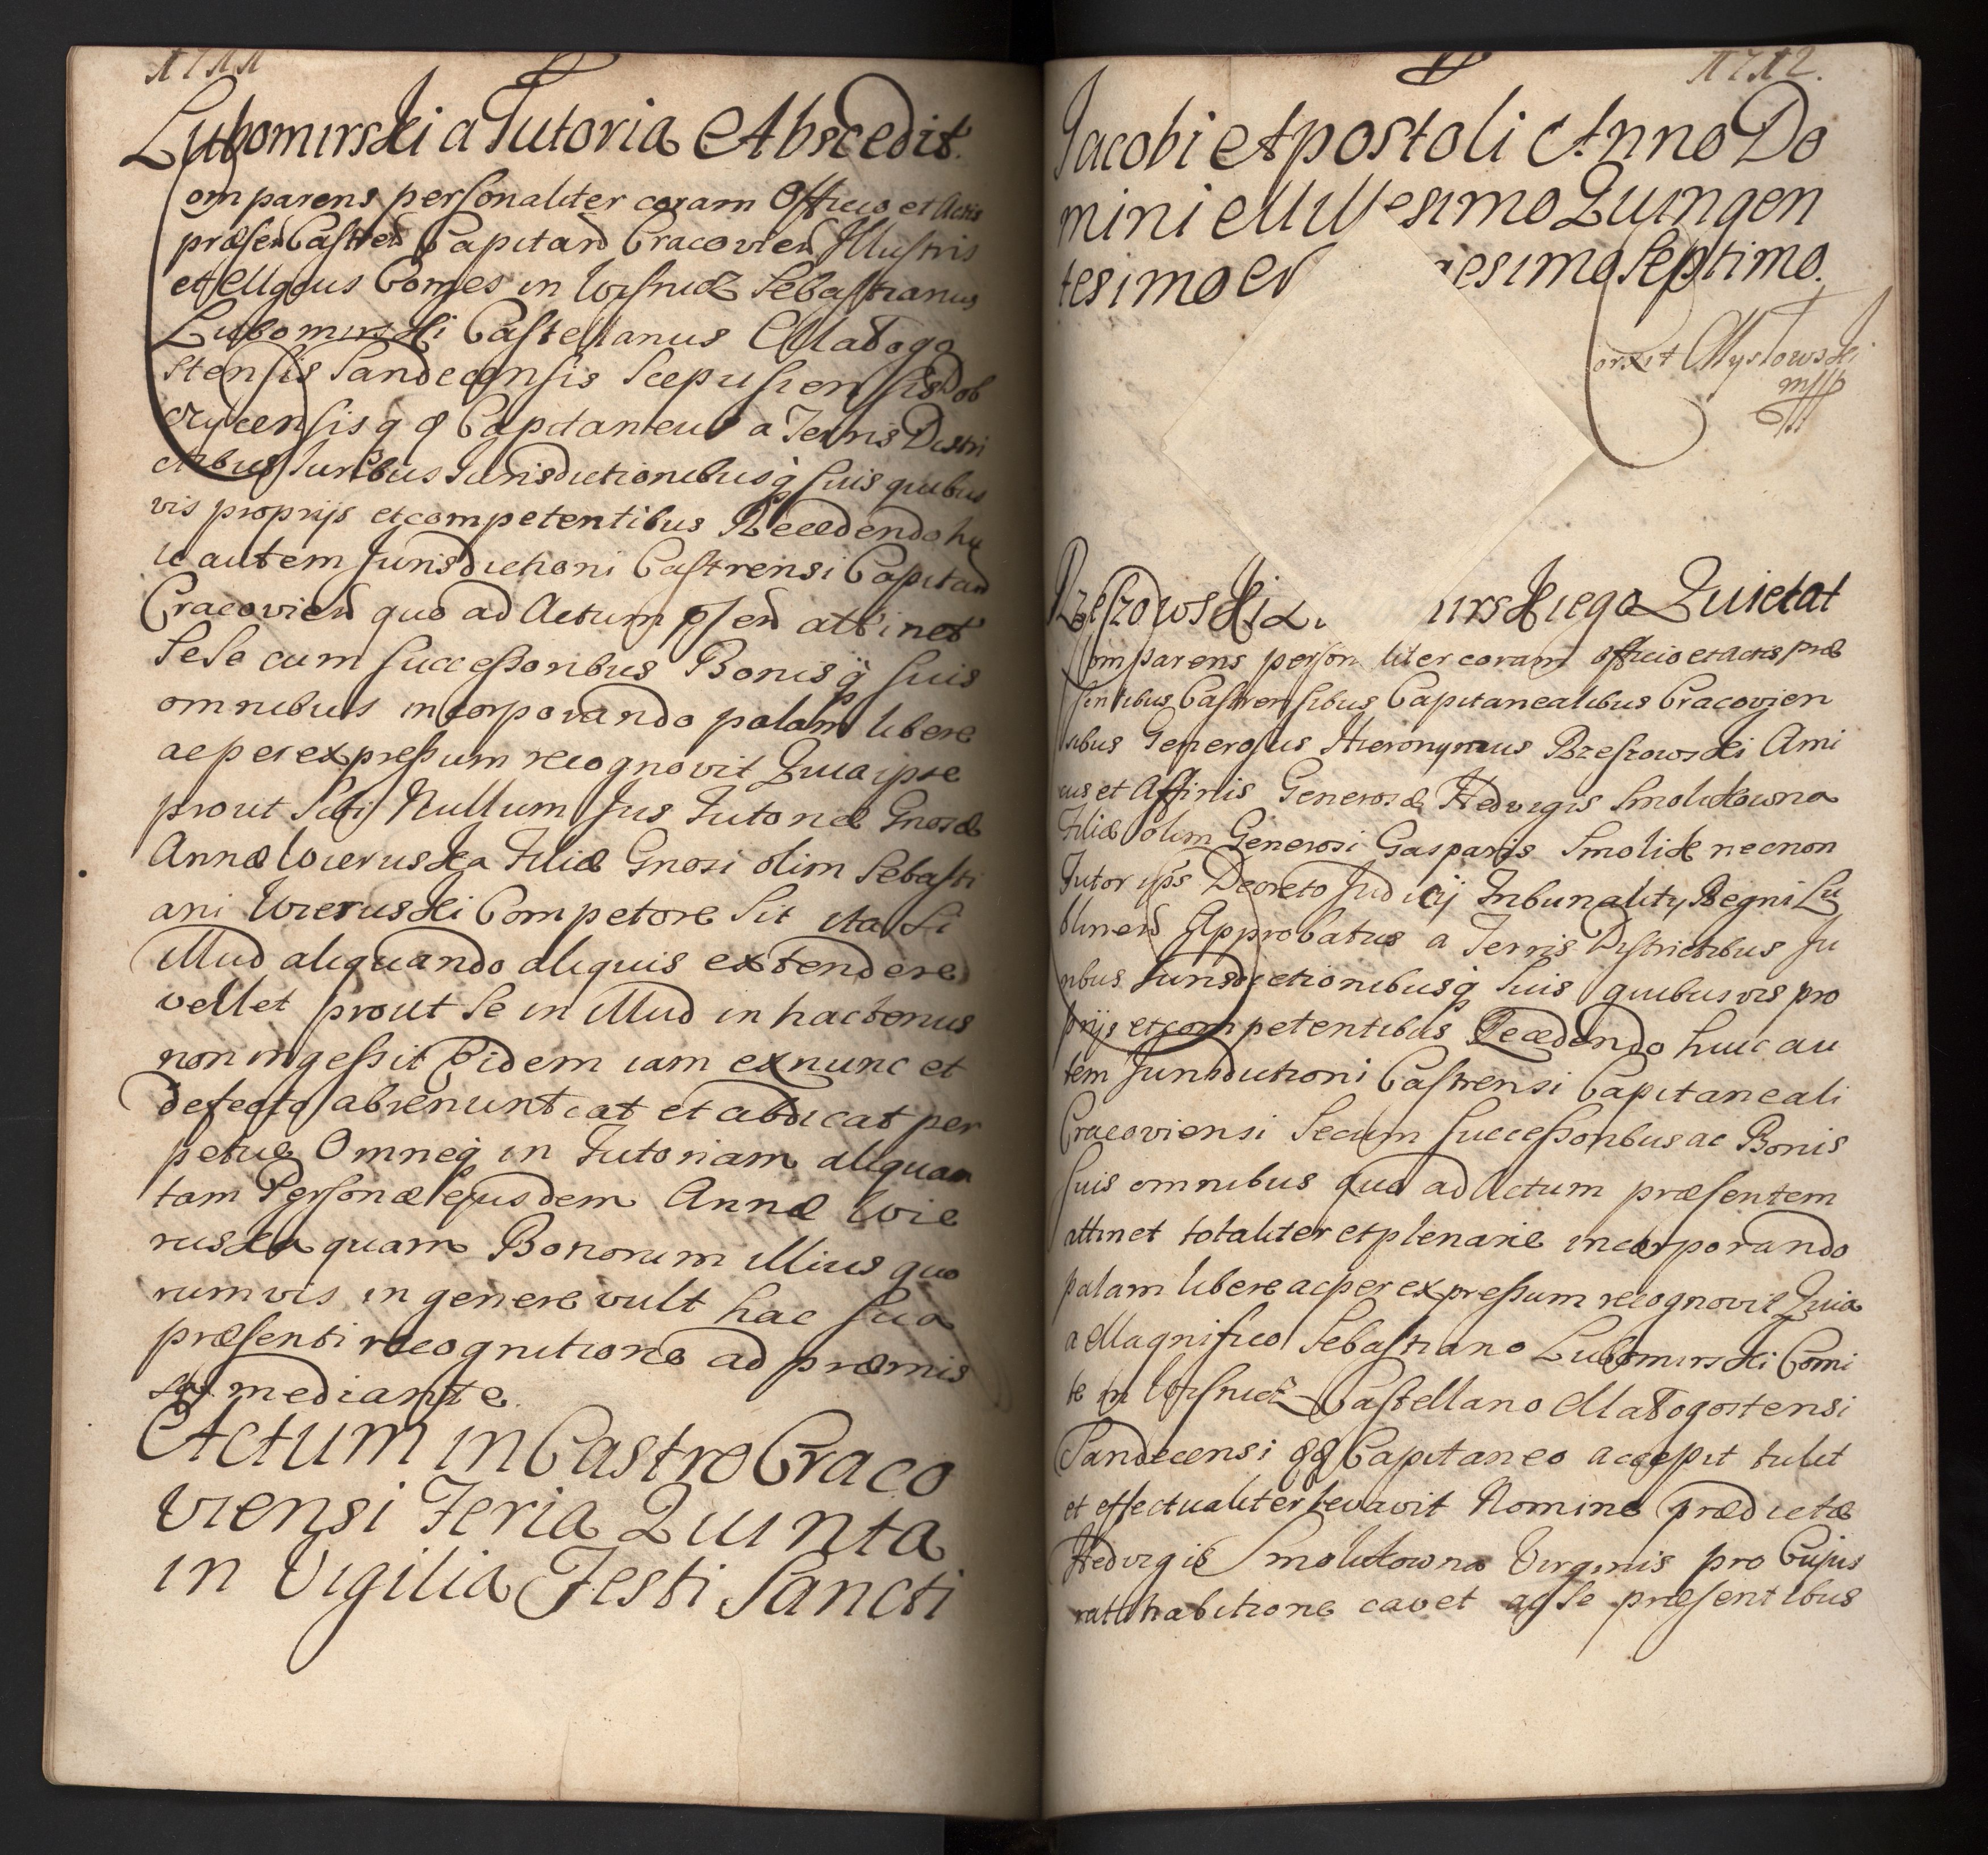 1711
Lubomirski a Tutoria Abscedit.
Comparens personaliter coram Officio et Actis
præsen Castren Capitan Cracovien Illustris
et Mgcus Comes in Wisnicz Sebastianus
Lubomirski Castellanus Małogo
stensis Sandecensis Scepusiensis Dob
czycensis q q Capitaneus a Terris Distri
ctibus Juribus Jurisdictionibusq suis quibus
vis proprijs et competentibus Recedendo hu
ic autem Jurisdictioni Castrensi Capitan
Cracovien quo ad Actum psen attinet
Sese cum successoribus Bonisq suis
omnibus incorporando palam libere
ac per expressum recognovit Quia ipse
prout sibi Nullum Jus Tutoriæ Gnosæ
Annæ Wieruska Filiæ Gnosi olim Sebasti
ani Wieruski Competere Sit ita Si
illud aliquando aliquis extendere
vellet prout se in illud in hactenus
non ingessit Eidem iam exnunc et
defecto abrenuntiat et abdicat per
petue Omneq in Tutoriam aliquam
tam Personæ ejusdem Annæ Wie
ruska quam Bonorum illius quo
rumvis in genere vult hac sua
præsenti recognitione ad præmis
sa mediante.
Actum in Castro Craco
viensi Feria Quinta
in Vigilia Festi Sancti
1712.
Jacobi Apostoli Anno Do
mini Millesimo Quingen
tesimo esimo Septimo.
Corxit Mysłowski
mpp
Rzeszowski Lu irskiego Quietat
Comparens person liter coram officio et actis præ
sentibus Castrensibus Capitanealibus Cracovien
sibus Generosus Hieronymus Rzeszowski Ami
cus et Affinis Generosæ Hedvigis Smolikowna
Filiæ olim Generosi Gasparis Smolik necnon
Tutor ips Decreto Judicij Tribunality Regni Lu
blinen Approbatus a Terris Districtibus Ju
ribus Jurisdictionibusq suis quibusvis pro
prijs et competentibus Recedendo huic au
tem Jurisdictioni Castrensi Capitaneali
Cracoviensi Secum successoribus ac Bonis
suis omnibus quo ad Actum præsentem
attinet totaliter et plenarie incorporando
palam libere ac per expressum recognovit Quia
a Magnifico Sebastiano Lubomirski Comi
te in Wisnicz Castellano Małogostensi
Sandecensi qq Capitaneo accepit tulit
et effectualiter levavit Nomine prædictæ
Hedvigis Smolikowna Virginis pro Cujus
ratihabitione cavet ac se præsentibus